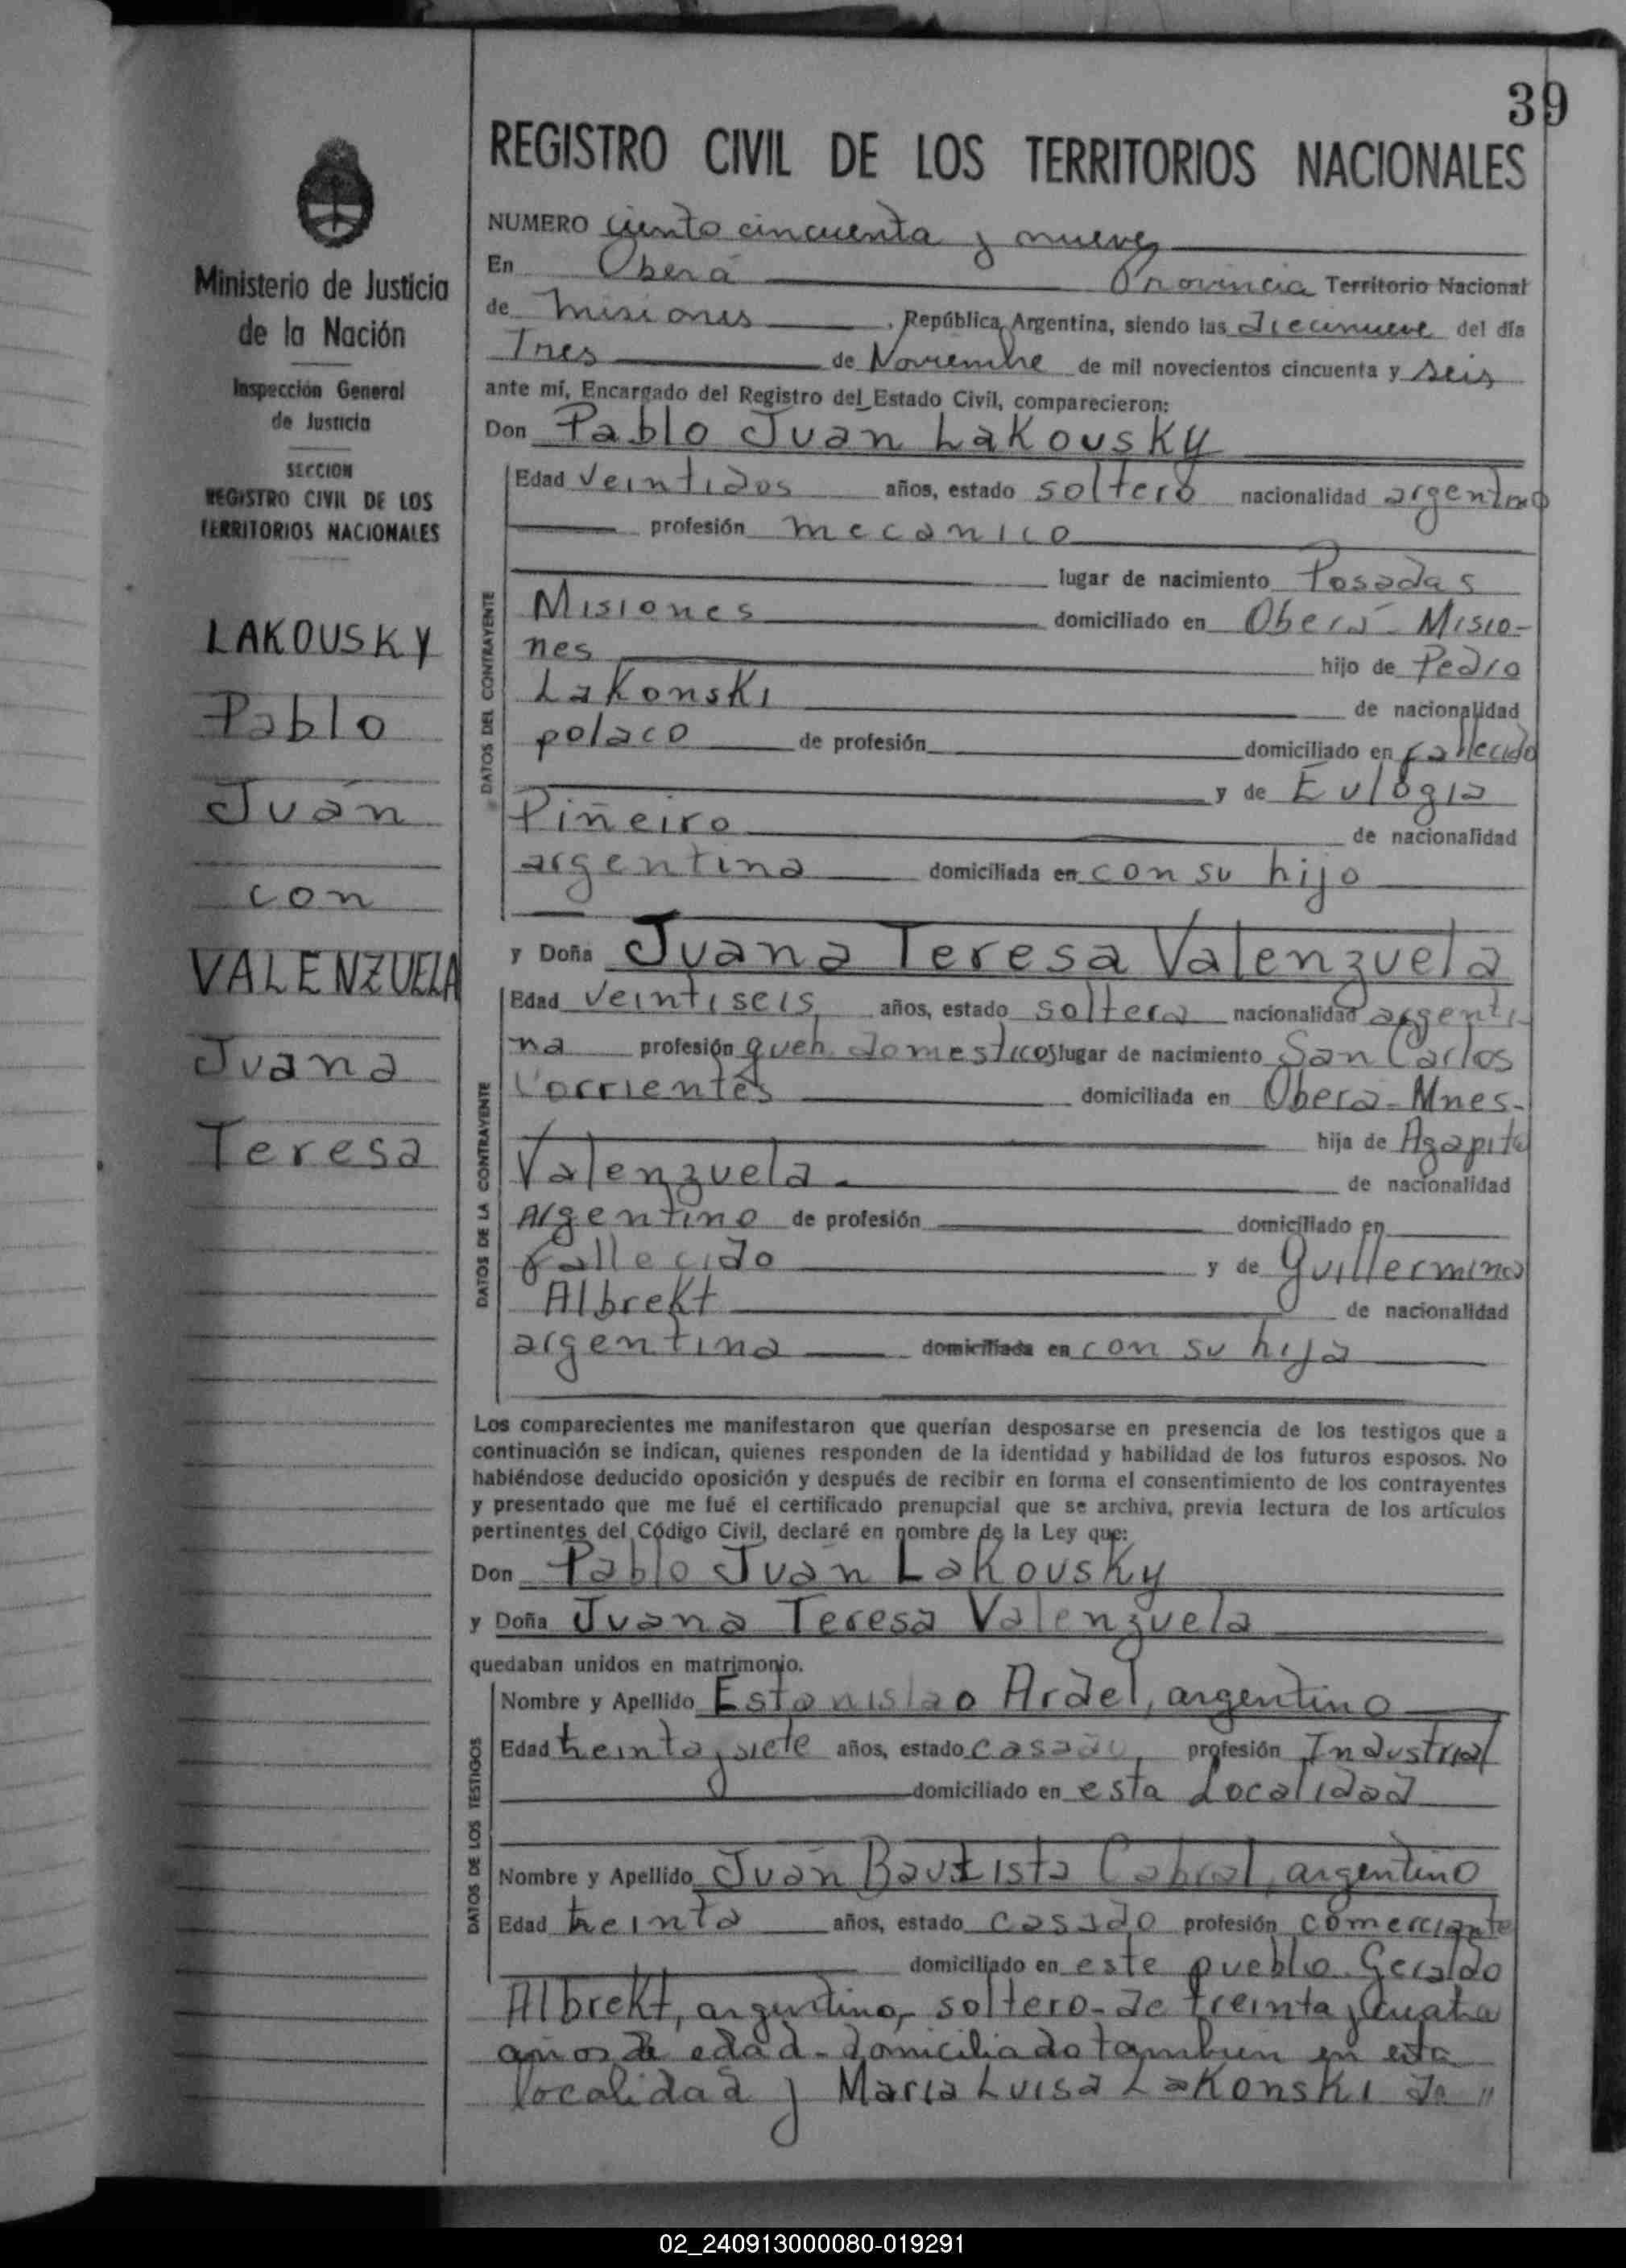 39
REGISTRO CIVIL DE LOS TERRITORIOS NACIONALES
Ministerio de Justicia
de la Nación
Inspección General
de Justicia
SECCION
REGISTRO CIVIL DE LOS
TERRITORIOS NACIONALES
LAKOUSKY
Pablo
Juan
con
VALENZUELA
Juana
Teresa
NUMERO ciento cincuenta y nueve
En Oberá Provincia Territorio Nacional
de Misiones, República Argentina, siendo las diecinueve del día
Tres de Noviembre de mil novecientos cincuenta y seis
ante mí, Encargado del Registro del Estado Civil, comparecieron:
Don Pablo Juan Lakousky
DATOS DEL CONTRAYENTE
Edad veintidos años, estado soltero nacionalidad argentino
profesión mecanico
lugar de nacimiento Posadas
Misiones domiciliado en Oberá - Misio-
nes hijo de Pedro
Lakonski de nacionalidad
polaco de profesión domiciliado en fallecido
y de Eulogia
Piñeiro de nacionalidad
argentina domiciliada en con su hijo
y Doña Juana Teresa Valenzuela
DATOS DE LA CONTRAYENTE
Edad veintiseis años, estado soltera nacionalidad argenti-
na profesión queh. domesticos lugar de nacimiento San Carlos
Corrientes domiciliada en Oberá - Mnes-
hija de Agapito
Valenzuela - de nacionalidad
Argentino de profesión domiciliado en
fallecido y de Guillermina
Albrekt de nacionalidad
argentina domiciliada en con su hija
Los comparecientes me manifestaron que querían desposarse en presencia de los testigos que a
continuación se indican, quienes responden de la identidad y habilidad de los futuros esposos. No
habiéndose deducido oposición y después de recibir en forma el consentimiento de los contrayentes
y presentado que me fué el certificado prenupcial que se archiva, previa lectura de los artículos
pertinentes del Código Civil, declaré en nombre de la Ley que:
Don Pablo Juan Lakousky
y Doña Juana Teresa Valenzuela
quedaban unidos en matrimonio.
DATOS DE LOS TESTIGOS
Nombre y Apellido Estanislao Ardel, argentino
Edad treinta y siete años, estado casado, profesión Industrial
domiciliado en esta Localidad
Nombre y Apellido Juan Bautista Cabral, argentino
Edad treinta años, estado casado profesión comerciante
domiciliado en este pueblo. Geraldo
Albrekt, argentino, soltero - de treinta y cuatro
años de edad - domiciliado tambien en esta
localidad y Maria Luisa Lakonski de
02_240913000080-019291